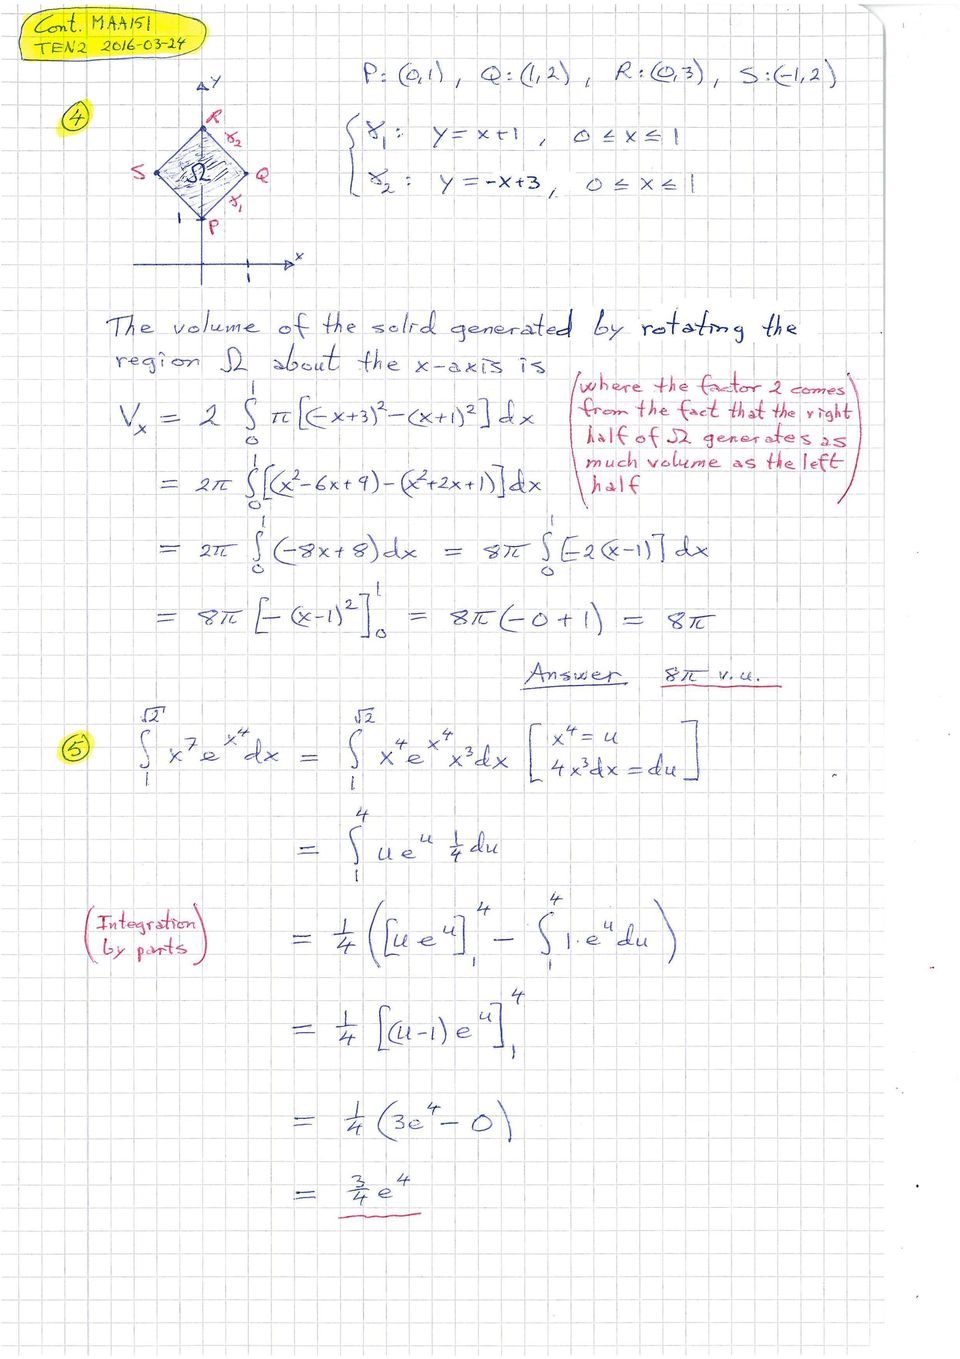 Cont. MAA151
TEN2 2016-03-24
P: (0,1), Q: (1,2), R: (0,3), S: (-1,2)
④
y
R
γ₂
S
Ω
Q
γ₁
1
P
x
1
γ₁: y = x+1, 0 ≤ x ≤ 1
γ₂: y = -x+3, 0 ≤ x ≤ 1
The volume of the solid generated by rotating the
region Ω about the x-axis is
V_x = 2 ∫₀¹ π[(-x+3)² - (x+1)²] dx
(where the factor 2 comes
from the fact that the right
half of Ω generates as
much volume as the left
half)
= 2π ∫₀¹ [(x²-6x+9) - (x²+2x+1)] dx
= 2π ∫₀¹ (-8x+8) dx = 8π ∫₀¹ [-2(x-1)] dx
= 8π [-(x-1)²]₀¹ = 8π(-0+1) = 8π
Answer 8π v.u.
⑤ ∫₁^√2 x⁷ e^(x⁴) dx = ∫₁^√2 x⁴ e^(x⁴) x³ dx [x⁴ = u
4x³dx = du]
= ∫₁⁴ u e^u 1/4 du
(Integration
by parts)
= 1/4 ([u e^u]₁⁴ - ∫₁⁴ 1·e^u du)
= 1/4 [(u-1) e^u]₁⁴
= 1/4 (3e⁴ - 0)
= 3/4 e⁴